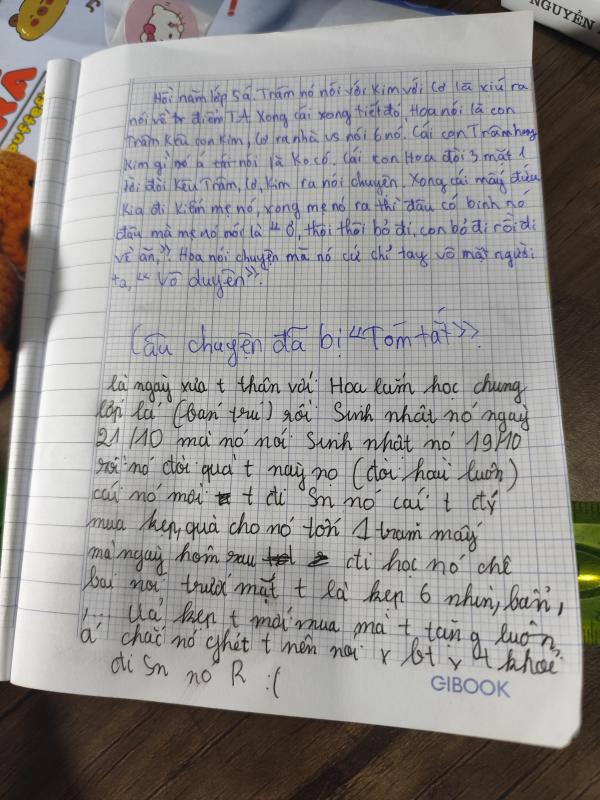 NGUYỄN
Hồi năm lớp 5 á. Trâm nó nói với Kim với Cơ là xíu ra
nói về tr điểm TA. Xong cái xong tiết đó, Hoa nói là con
Trâm Kêu con Kim, Cơ ra nhà vs nói 6 nó. Cái con Trâm
Kim gì nó á nói là Ko có, Cái con Hoa đòi 3 mặt 1
lời đòi Kêu Trâm, Cơ, Kim ra nói chuyện. Xong cái mấy đứa
Kia đi Kiếm mẹ nó, xong mẹ nó ra thì đâu có binh nó
đâu mà mẹ nó nói là "ơ, thôi thôi bỏ đi, con bỏ đi rồi đi
về ăn," Hoa nói chuyện mà nó cứ chỉ tay vô mặt người
ta, "Vô duyên".
Câu chuyện đã bị "Tóm tắt".
là ngày xưa t thân với Hoa lắm học chung
lớp lá (bán trú) rồi Sinh nhật nó ngày
21/10 mà nó nói Sinh nhật nó 19/10
rồi nó đòi quà t này nọ (đòi hoài luôn)
cái nó mời t đi Sn nó cái t đy
mua kẹp, quà cho nó tốn 1 trăm mấy
mà ngày hôm sau đi học nó chê
bai nói trước mặt t là kẹp 6 nhìn, bẩn,
,... Uả kẹp t mới mua mà t tặng luôn,
á chắc nó ghét t nên nói v bt v t khỏi
đi Sn nó R :(
GIBOOK